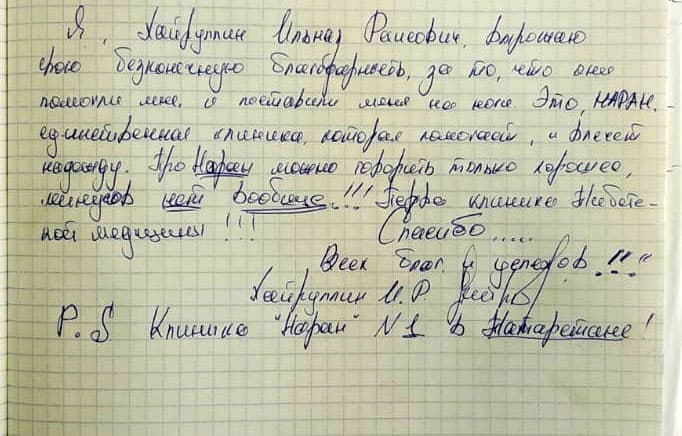 Я, Хайруллин Ильназ Раисович, выражаю
свою безконечную благодарность, за то, что они
помогли мне, и поставили меня на ноги. Это, НАРАН.
единственная клиника, которая помогает, и
надежду. Про Наран можно говорить только хорошее,
минусов нет вообще!!! клиника Тибетс-
кой медицины!!!
Спасибо.....
Всех благ. и успехов!!!
Хайруллин И.Р.
P.S Клиника "Наран" N1 в Татарстане!